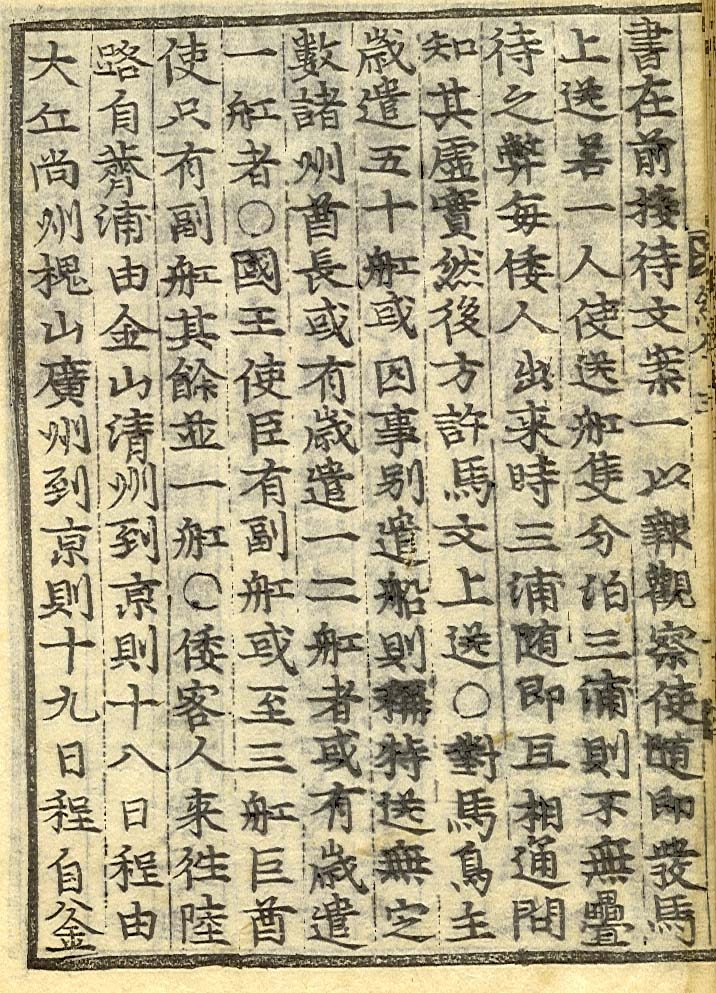 書在前接待文案一以報觀察使隨即發馬
上送若一人使送舡隻分泊三浦則不無疊
待之弊每倭人出来時三浦随即互相通問
知其虛實然後方許馬文上送○對馬島主
歲遣五十舡或因事别遣船則稱特送無定
數諸州酋長或有歲遣一二舡者或有歲遣
一舡者○國王使臣有副舡或至三舡巨酋
使只有副舡其餘並一舡○倭客人来徃陸
路自薺浦由金山清州到京則十八日程由
大丘尙州槐山廣州到京則十九日程自釜